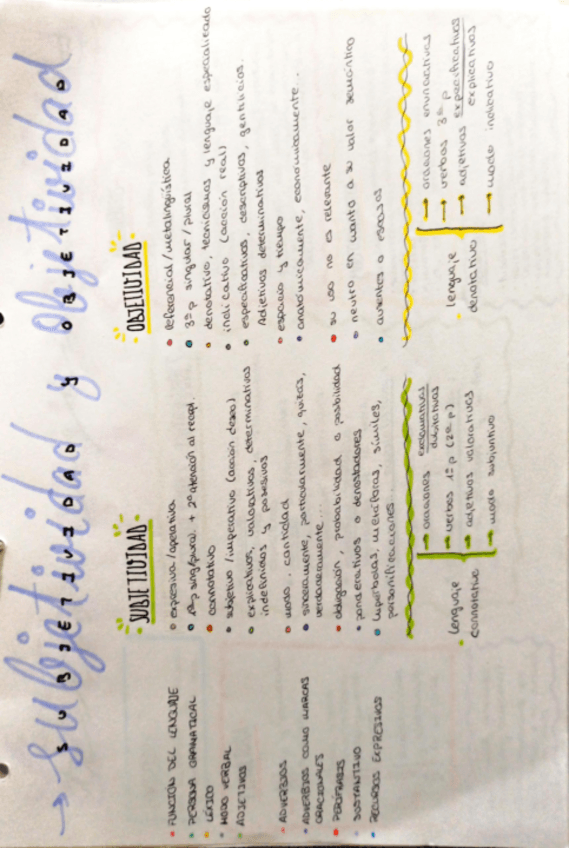 → Subjetividad y Objetividad
SUBJETIVIDAD OBJETIVIDAD
SUBJETIVIDAD
OBJETIVIDAD
• FUNCIÓN DEL LENGUAJE
• expresiva/apelativa
• referencial/metalingüística
• PERSONA GRAMATICAL
• 1ª p sing/plural + 2ª atención al recept.
• 3ª p singular/plural
• LÉXICO
• connotativo
• denotativo, tecnicismos y lenguaje especializado
• MODO VERBAL
• subjetivo/imperativo (acción deseo)
• indicativo (acción real)
• ADJETIVOS
• explicativos, valorativos, determinativos
indefinidos y posesivos
• especificativos, descriptivos, gentilicios.
Adjetivos determinativos
• ADVERBIOS
• modo, cantidad
• espacio y tiempo
• ADVERBIOS COMO MARCAS
ORACIONALES
• sinceramente, particularmente, quizás,
verdaderamente...
• anatómicamente, económicamente...
• PERÍFRASIS
• obligación, probabilidad o posibilidad
• su uso no es relevante
• SUSTANTIVO
• ponderativos o denostadores
• neutro en cuanto a su valor semántico
• RECURSOS EXPRESIVOS
• hipérbolas, metáforas, símiles,
personificaciones...
• ausentes o escasos
• lenguaje
connotativo
→ oraciones exclamativas
dubitativas
→ verbos 1ª p (2ª p)
→ adjetivos valorativos
→ modo subjuntivo
• lenguaje
denotativo
→ oraciones enunciativas
→ verbos 3ª p
→ adjetivos especificativos
explicativos
→ modo indicativo